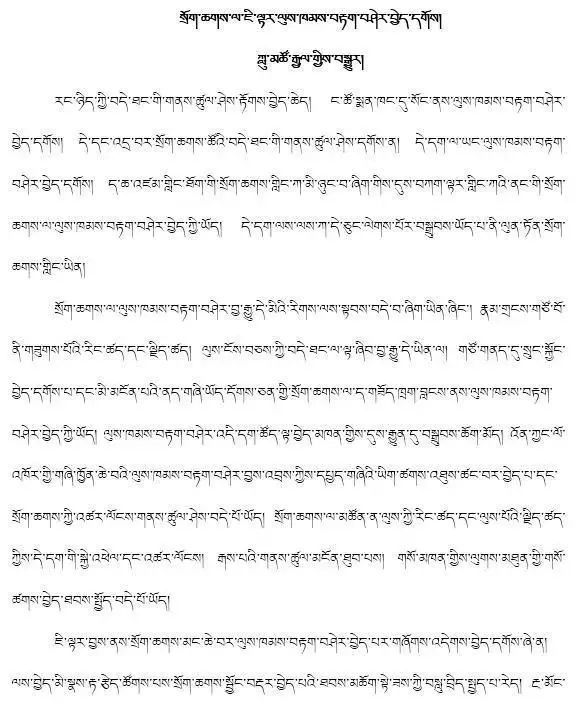 སྲོག་ཆགས་ལ་ཇི་ལྟར་ལུས་ཁམས་བརྟག་བཤེར་བྱེད་དགོས།
ཀླུ་མཚོ་རྒྱལ་གྱིས་བསྒྱུར།
རང་ཉིད་ཀྱི་བདེ་ཐང་གི་གནས་ཚུལ་ཤེས་རྟོགས་བྱེད་ཆེད། ང་ཚོ་སྨན་ཁང་དུ་སོང་ནས་ལུས་ཁམས་བརྟག་བཤེར་
བྱེད་དགོས། དེ་དང་འདྲ་བར་སྲོག་ཆགས་ཚོའི་བདེ་ཐང་གི་གནས་ཚུལ་ཤེས་དགོས་ན། དེ་དག་ལ་ཡང་ལུས་ཁམས་བརྟག་
བཤེར་བྱེད་དགོས། ད་ཆ་འཛམ་གླིང་ཐོག་གི་སྲོག་ཆགས་གླིང་ཀ་མི་ཉུང་བ་ཞིག་གིས་དུས་བཀག་ལྟར་གླིང་ཀའི་ནང་གི་སྲོག་
ཆགས་ལ་ལུས་ཁམས་བརྟག་བཤེར་བྱེད་ཀྱི་ཡོད། དེ་དག་ལས་ལས་ཀ་དེ་ཅུང་ལེགས་པོར་བསྒྲུབས་ཡོད་པ་ནི་ལུན་ཏོན་སྲོག་
ཆགས་གླིང་ཡིན།
སྲོག་ཆགས་ལ་ལུས་ཁམས་བརྟག་བཤེར་བྱ་རྒྱུ་དེ་མིའི་རིགས་ལས་སྟབས་བདེ་བ་ཞིག་ཡིན་ཞིང་། རྣམ་གྲངས་གཙོ་བོ་
ནི་གཟུགས་པོའི་རིང་ཚད་དང་ལྗིད་ཚད། ལུས་ངོས་བཅས་ཀྱི་བདེ་ཐང་ལ་ལྟ་ཞིབ་བྱ་རྒྱུ་དེ་ཡིན་ལ། གཙོ་གནད་དུ་སྲུང་སྐྱོང་
བྱེད་དགོས་པ་དང་མི་མངོན་པའི་ནད་གཞི་ཡོད་དོགས་ཅན་གྱི་སྲོག་ཆགས་ལ་ད་གཟོད་ཁྲག་བླངས་ནས་ལུས་ཁམས་བརྟག་
བཤེར་བྱེད་ཀྱི་ཡོད། ལུས་ཁམས་བརྟག་བཤེར་འདི་དག་ཚོད་ལྟ་བྱེད་མཁན་གྱིས་དུས་རྒྱུན་དུ་བསྒྲུབས་ཆོག་མོད། འོན་ཀྱང་ལོ་
འཁོར་གྱི་གཞི་ཁྱོན་ཆེ་བའི་ལུས་ཁམས་བརྟག་བཤེར་བྱས་འབྲས་ཀྱིས་དཔྱད་གཞིའི་ཡིག་ཚགས་འཐུས་ཚང་བར་བྱེད་པ་དང་
སྲོག་ཆགས་ཀྱི་འཚར་ལོངས་གནས་ཚུལ་ཤེས་བདེ་པོ་ཡོད། སྲོག་ཆགས་ལ་མཚོན་ན་ལུས་ཀྱི་རིང་ཚད་དང་ལུས་པོའི་ལྗིད་ཚད་
ཀྱིས་དེ་དག་གི་སྐྱེ་འཕེལ་དང་འཚར་ལོངས། རྒས་པའི་གནས་ཚུལ་མངོན་ཐུབ་པས། གསོ་མཁན་གྱིས་ལུགས་མཐུན་གྱི་གསོ་
ཚགས་བྱེད་ཐབས་སྤྱོད་བདེ་པོ་ཡོད།
ཇི་ལྟར་བྱས་ནས་སྲོག་ཆགས་མང་ཆེ་བར་ལུས་ཁམས་བརྟག་བཤེར་བྱེད་པར་གཞོགས་འདེགས་བྱེད་དགོས་ཞེ་ན།
ལས་བྱེད་མི་སྣས་རྟ་རྩེད་ཚོགས་པས་སྲོག་ཆགས་སྦྱོང་བརྡར་བྱེད་པའི་ཐབས་མཆོག་སྟེ་ཟས་ཀྱི་བསླུ་བྲིད་སྤྱད་པ་རེད། རྔ་མོང་